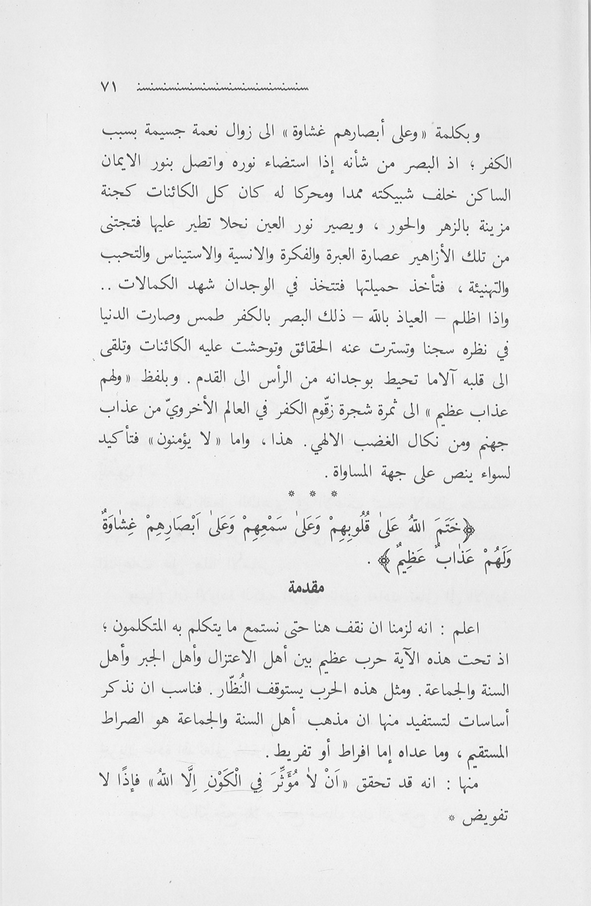 ٧١
وبكلمة «وعلى أبصارهم غشاوة» الى زوال نعمة جسيمة بسبب
الكفر؛ اذ البصر من شأنه إذا استضاء نوره واتصل بنور الايمان
الساكن خلف شبيكته ممدا ومحركا له كان كل الكائنات كجنة
مزينة بالزهر والحور، ويصير نور العين نحلا تطير عليها فتجتنى
من تلك الأزاهير عصارة العبرة والفكرة والانسية والاستيناس والتحبب
والتهنيئة، فتأخذ حميلتها فتتخذ في الوجدان شهد الكمالات..
واذا اظلم - العياذ بالله - ذلك البصر بالكفر طمس وصارت الدنيا
في نظره سجنا وتسترت عنه الحقائق وتوحشت عليه الكائنات وتلقى
الى قلبه آلاما تحيط بوجدانه من الرأس الى القدم. وبلفظ «ولهم
عذاب عظيم» الى ثمرة شجرة زقّوم الكفر في العالم الأخرويّ من عذاب
جهنم ومن نكال الغضب الالهي. هذا، واما «لا يؤمنون» فتأكيد
لسواء ينص على جهة المساواة.
* * *
﴿خَتَمَ اللّٰهُ عَلٰى قُلُوبِهِمْ وَعَلٰى سَمْعِهِمْ وَعَلٰى اَبْصَارِهِمْ غِشَاوَةٌ
وَلَهُمْ عَذَابٌ عَظِيمٌ﴾.
مقدمة
اعلم: انه لزمنا ان نقف هنا حتى نستمع ما يتكلم به المتكلمون؛
اذ تحت هذه الآية حرب عظيم بين أهل الاعتزال وأهل الجبر وأهل
السنة والجماعة. ومثل هذه الحرب يستوقف النُظّار. فناسب ان نذكر
أساسات لتستفيد منها ان مذهب أهل السنة والجماعة هو الصراط
المستقيم، وما عداه إما افراط أو تفريط.
منها: انه قد تحقق «اَنْ لاٰ مُؤَثِّرَ فِي الْكَوْنِ اِلَّا اللّٰهُ» فإذًا لا
تفويض *